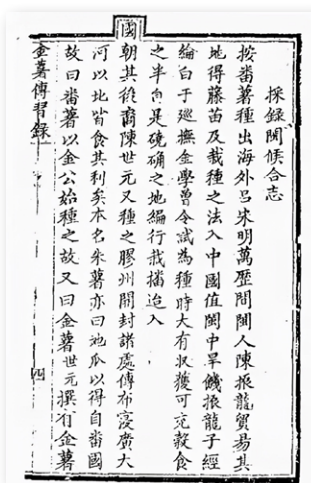 採錄閩侯合志
按番薯種出海外呂宋明萬歷間閩人陳振龍貿易其
地得藤苗及栽種之法入中國值閩中旱饑振龍子經
綸白于廵撫金學曾令試為種時大有収穫可充穀食
之半自是磽确之地徧行栽播迨入
國
朝其後裔陳世元又種之膠州開封諸處傳布寖廣大
河以北皆食其利矣本名朱薯亦曰地瓜以得自番國
故曰番薯以金公始種之故又曰金薯世元撰有金薯
金薯傳習錄
四